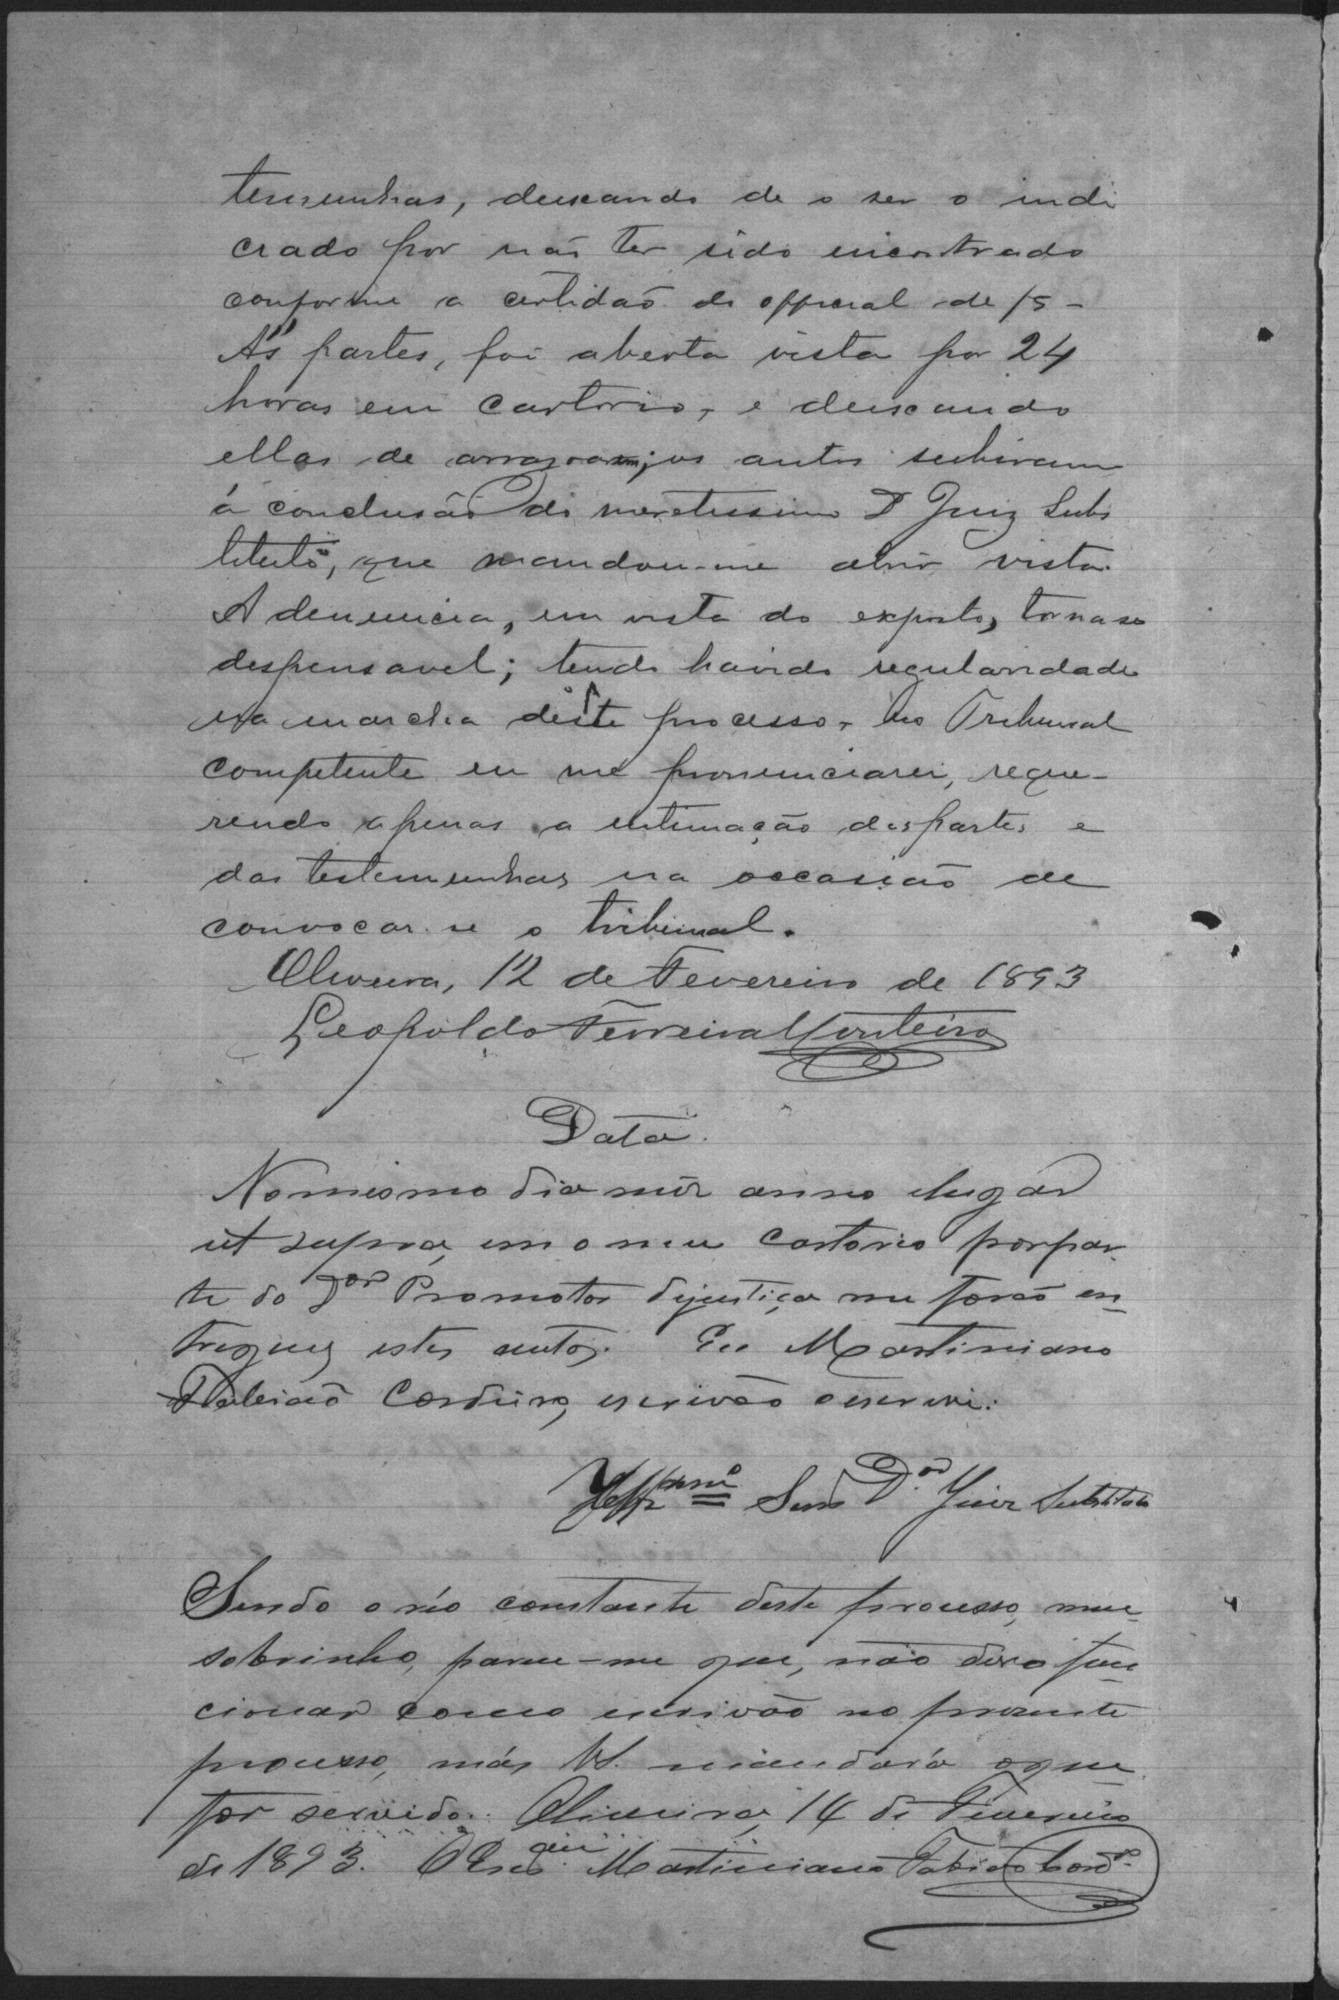 temunhas, deixando de o ser o indi
ciado por não ter sido encontrado
conforme a certidão do official de f5 -
Ás partes, foi aberta vista por 24
horas em cartorio, e deixando
ellas de arrazoarem, os autos subiram
á conclusão do meretissimo Dr Juiz Subs
tituto, que mandou-me abrir vista.
A denuncia, em vista do exposto, torna se
despensavel; tendo havido regularidade
na marcha deste processo, no Tribunal
competente eu me pronunciarei, reque-
rendo apenas a intimação das partes e
das testemunhas na occasião de
convocar-se o tribunal.
Oliveira, 12 de Fevereiro de 1893
Leopoldo Ferreira Monteiro
Data.
No mesmo dia mez anno e lugar
ut supra, em o meu cartorio por par
te do Dor Promotor dejustiça me forão en
tregues estes autos. Eu Martiniano
Fabiano Cordeiro, escrivão o escrevi.
Senr Dor Juiz Substituto
Sendo o réo constante deste processo, meu
sobrinho, parece-me que, não devo func
cionar como escrivão no presente
processo, más VS. mandará o que
for servido. Oliveira, 14 de Fevereiro
de 1893. O Escrão Martiniano Fabiano Cordo